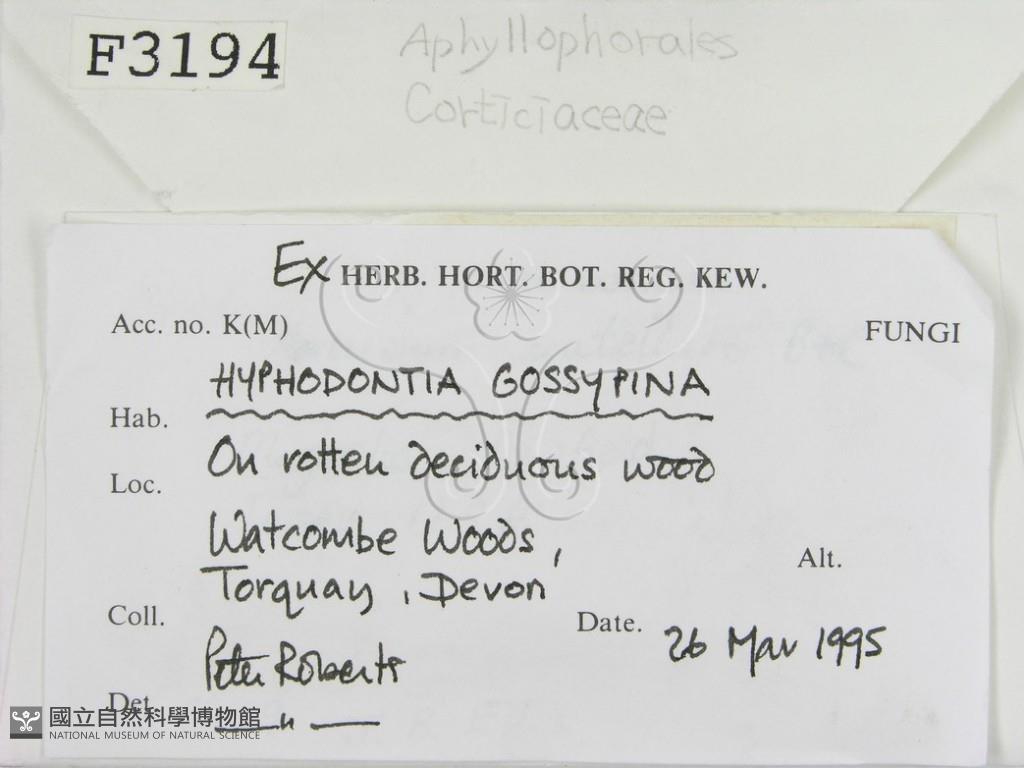 F3194
Aphyllophorales
Corticiaceae
Ex HERB. HORT. BOT. REG. KEW.
Acc. no. K(M)
FUNGI
HYPHODONTIA GOSSYPINA
Hab.
On rotten deciduous wood
Loc.
Watcombe Woods,
Alt.
Torquay, Devon
Coll.
Date. 26 Mar 1995
Peter Roberts
Det. — " —
國立自然科學博物館
NATIONAL MUSEUM OF NATURAL SCIENCE